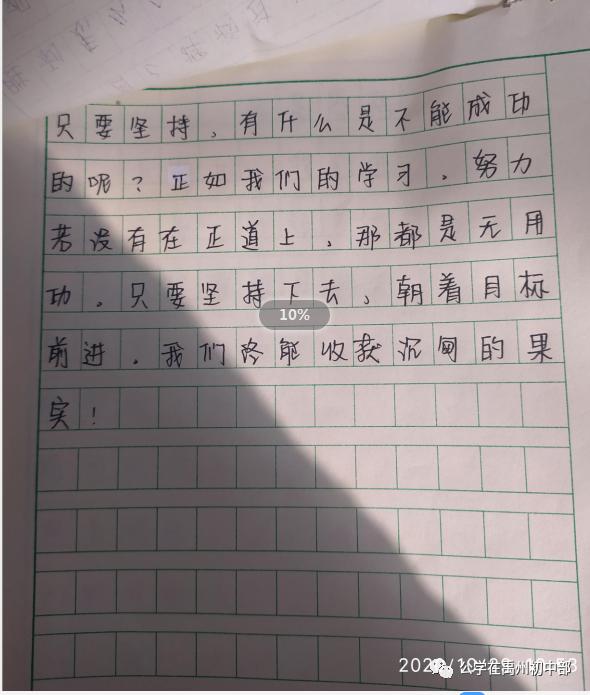 只要坚持，有什么是不能成功
的呢？正如我们的学习，努力
若没有在正道上，那都是无用
功。只要坚持下去，朝着目标
10%
前进，我们终能收获沉甸的果
实！
公学在禹州初中部